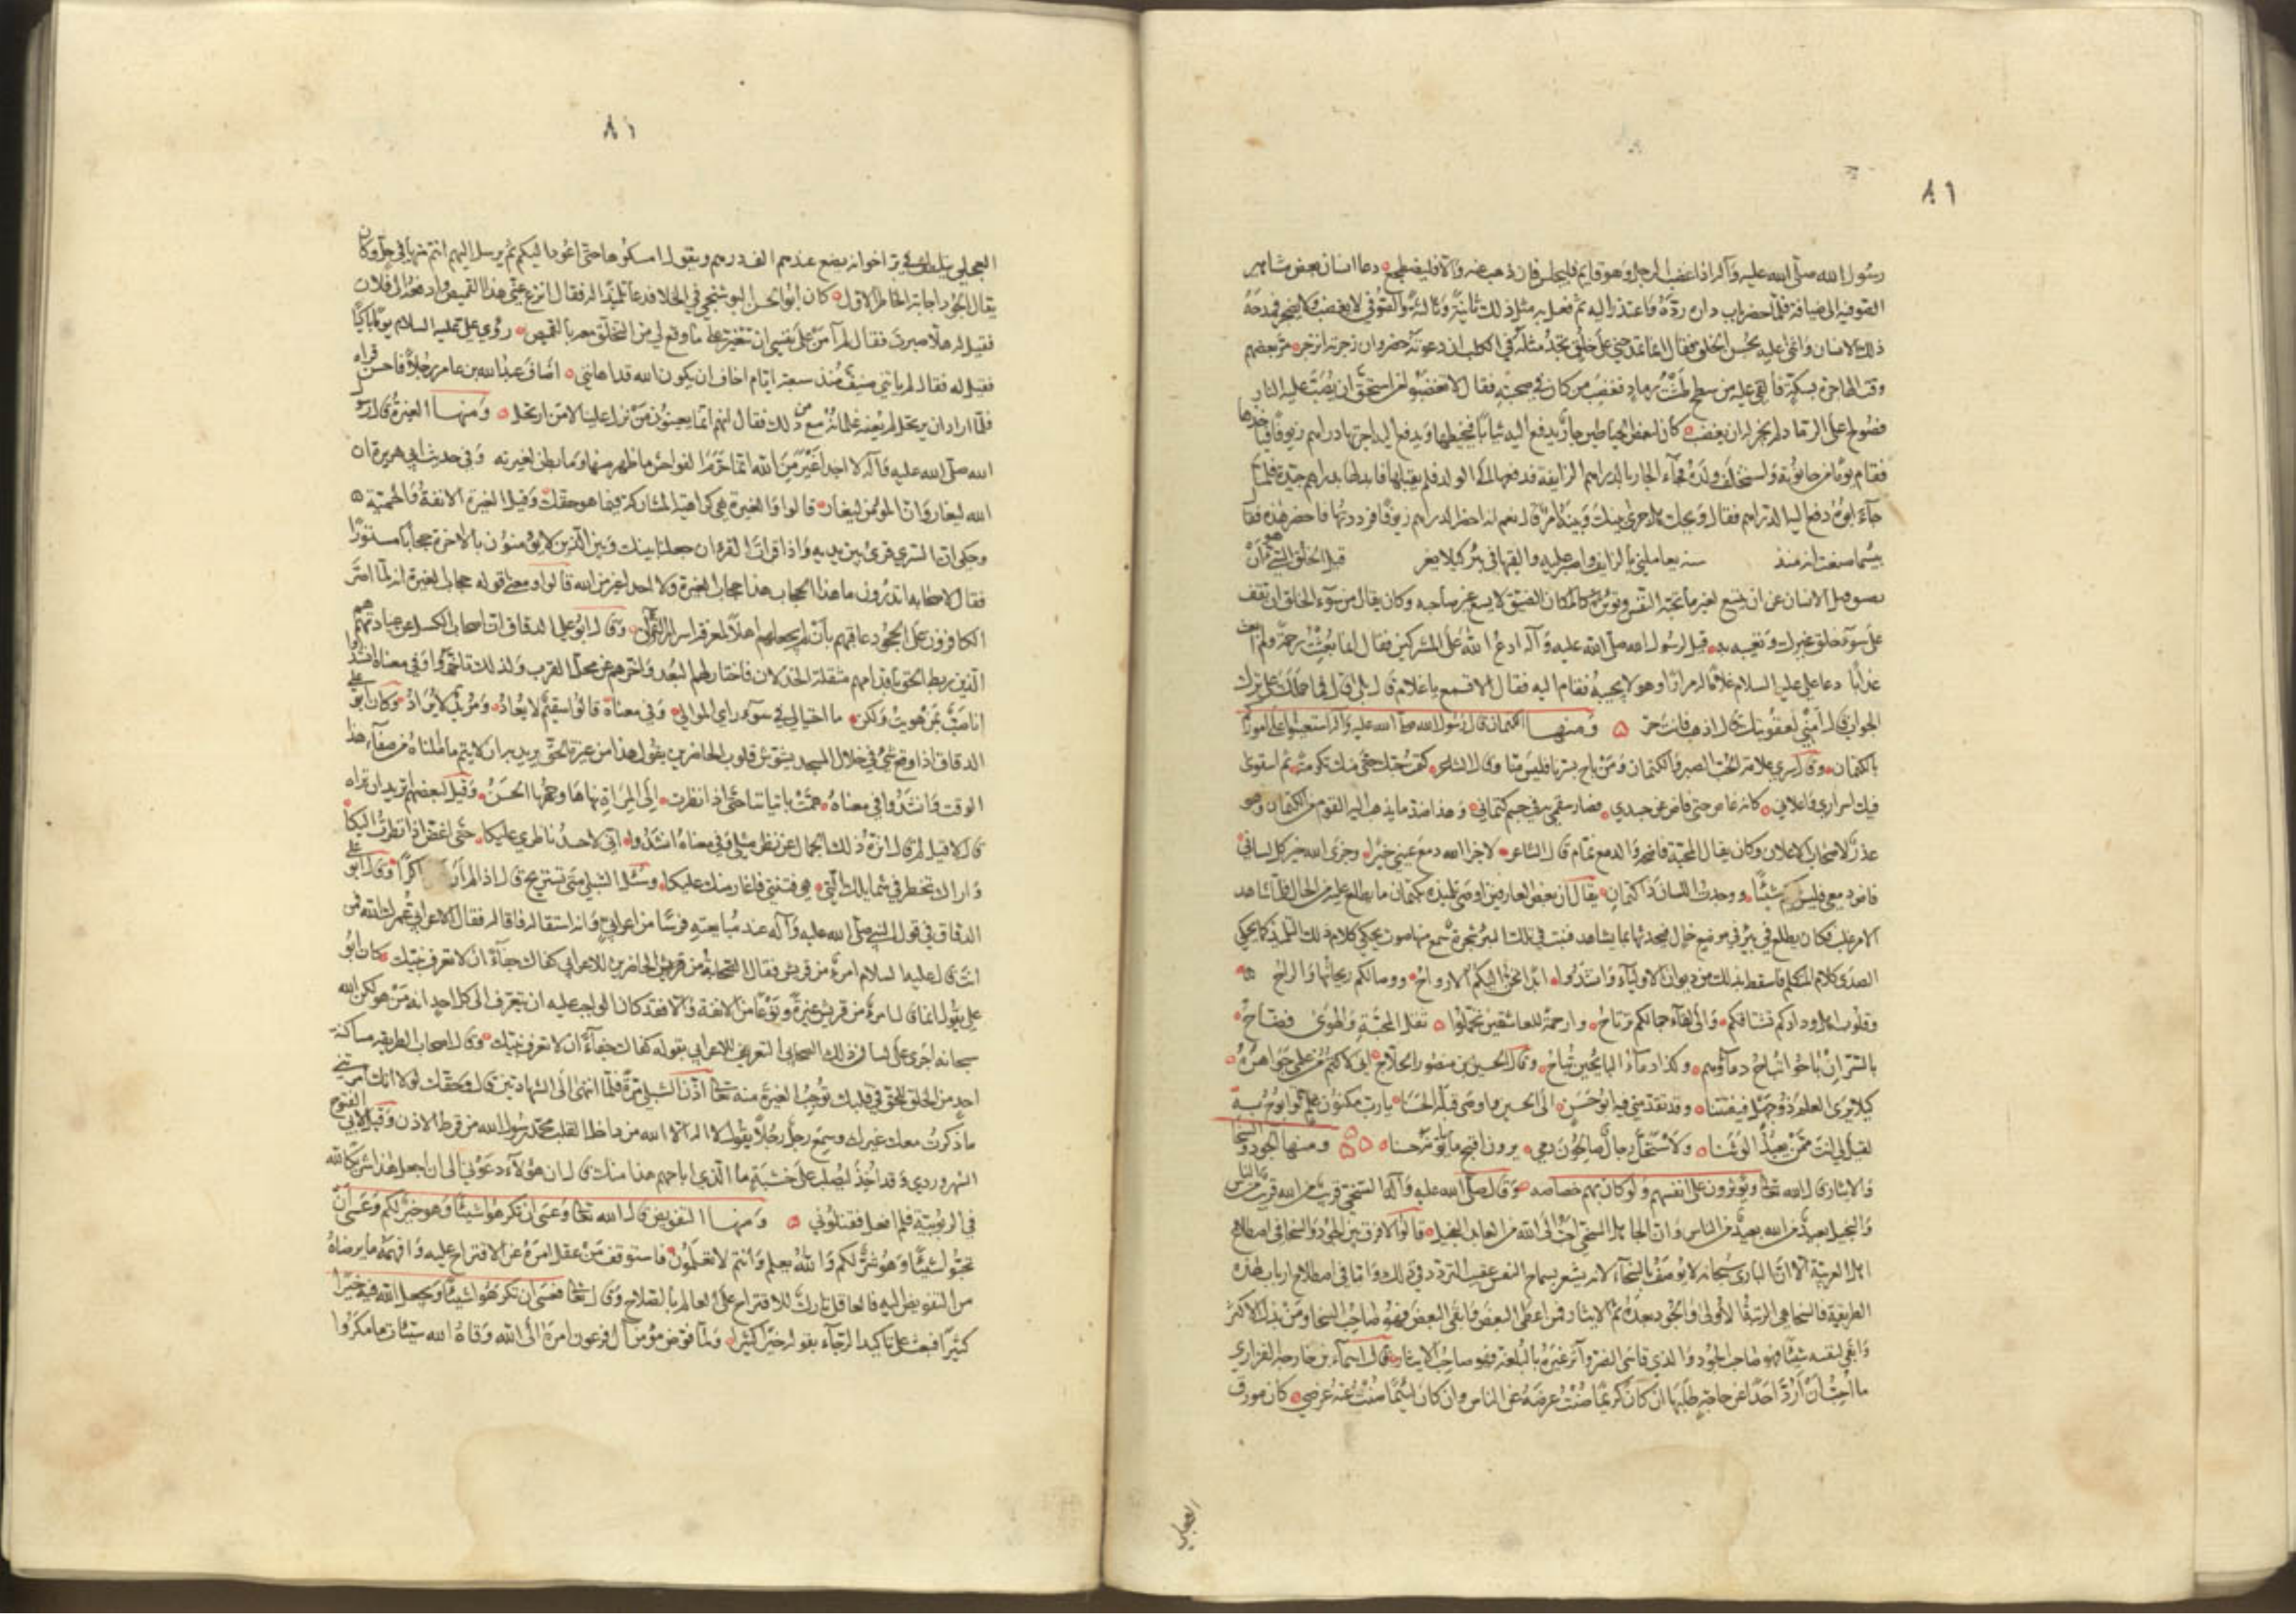 ٨١
رسول الله صلى الله عليه وآله اذا غضب الرجل وهو قايم فليجلس فان ذهب عنه والا فليضطجع دعا انسان بعض مشاهير
الصوفيه الى ضيافة فلما حضر باب داره ردّه واعتذر اليه ثم فعل به مثل ذلك ثانية وثالثة والصوفي لا يغضب ولا يضجر فمدحه
ذلك الانسان واثنى عليه بحسن الخلق فقال انما تمدحني على خلق تجد مثله في الكلب اذا دعوته حضر وان زجرته انزجر مرّ بعضهم
وقت الهاجرة بسكة فألقي عليه من سطح طشت رماد فغضب من كان في صحبته فقال لا تغضبوا من استحق ان يصب عليه النار
فصولح على الرماد لم يجز له ان يغضب كان لبعض الخياطين جار يدفع اليه ثيابا فيخيطها ويدفع اليه اجرتها دراهم زيوفا فياخذها
فقام يوما من حانوته واستخلف ولده فجآء الجار بالدراهم الزايفة فدفعها الى الولد فلم يقبلها فابدلها بدراهم جيدة فلما
جآء ابوه دفع اليه الدراهم فقال ويحك هل جرى بينك وبينه امر قال نعم انه احضر الدراهم زيوفا فرددتها فاحضر هذه فقال
بيسما صنعت انه منذ سنه يعاملني بالزايف واصبر عليه والقيها في بئر كيلا يغر قيل الخلق السيئ هو ان
يضيق قلب الانسان عن ان يتسع لغير ما تحبه النفس وتؤثره كالمكان الضيق لا يسع غير صاحبه وكان يقال من سوء الخلق ان تقف
على سوء خلق غيرك وتعيبه به قيل لرسول الله صلى الله عليه وآله ادع الله على المشركين فقال انما بعثت رحمة ولم ابعث
عذابا دعا علي عليه السلام غلاما له مرارا وهو لا يجيبه فقام اليه فقال الا تسمع يا غلام قال بلى قال فما حملك على ترك
الجواب قال امني لعقوبتك قال اذهب فانت حر ومنها الكتمان قال رسول الله صلى الله عليه وآله استعينوا على اموركم
بالكتمان وقال سري علامة الحب الصبر والكتمان ومن باح بسرنا فليس منا وقال الشاعر كتمت حبك حتى منك تكرمة ثم استوى
فيك اسراري واعلاني كانه غاض حتى فاض عن جسدي فصار سقمي به في جسم كتماني وهذا ضد ما يذهب اليه القوم من الكتمان وهو
عذر لاصحاب الاعلان وكان يقال المحبة فاضحة والدمع نمام قال الشاعر لا جزا الله دمع عيني خيرا وجزى الله خيرا كل لساني
فاض دمعي فليس يكتم شيئا ووجدت اللسان ذا كتمان يقال ان بعض العارفين اوصى تلميذه بكتمان ما يطلع عليه من الحال فلما شاهد
الامر غلب فكان يطلع في بئر في موضع خال فيحدثها بما يشاهد فنبت في تلك البئر شجرة سمع منها صوت يحكي كلام ذلك التلميذ كما يحكي
الصدى كلام المتكلم فاسقط بذلك من ديوان الاولياء وانشدوا ابدا تحن اليكم الارواح ووصالكم ريحانها والراح
وقلوب اهل ودادكم تشتاقكم والى لقآء جمالكم ترتاح وارحمة للعاشقين تحملوا ثقل المحبة والهوى فضاح
بالسر ان باحوا تباح دماؤهم وكذا دمآء البائحين تباح وقال الحسين بن منصور الحلاج اني لاكتم من علمي جواهره
كيلا يرى العلم ذو جهل فيفتتنا وقد تقدمني فيه ابو حسن الى الحسين واوصى قبله الحسنا يا رب مكنون علم لو ابوح به
لقيل لي انت ممن يعبد الوثنا ولاستحل رجال صالحون دمي يرون اقبح ما يأتونه حسنا ومنها الجود والسخا
والايثار قال الله تعالى ويؤثرون على انفسهم ولو كان بهم خصاصه وقال صلى الله عليه وآله السخي قريب من الله قريب من الناس
والبخيل بعيد من الله بعيد من الناس وان الجاهل السخي احب الى الله من العابد البخيل قالوا لا فرق بين الجود والسخا في اصطلاح
اهل العربية الا ان الباري سبحانه لا يوصف بالسخآء لانه يشعر بسماح النفس عقيب التردد في ذلك واما في اصطلاح ارباب هذه
الطريقة فالسخا هي الرتبة الاولى والجود بعده ثم الايثار فمن اعطى البعض وابقى البعض فهو صاحب السخا ومن بذل الاكثر
وابقى لنفسه شيئا فهو صاحب الجود والذي قاسى الضر وآثر غيره بالبلغة فهو صاحب الايثار قال اسمآء بن خارجه الفزاري
ما احب ان ارد احدا عن حاجة طلبها ان كان كريما صنت عرضه عن الناس وان كان لئيما صنت عنه عرضي كان مورق
العجلي
٨١
العجلي يتلطف في بر اخوانه يضع عندهم الف درهم ويقول امسكوها حتى اعود اليكم ثم يرسل اليهم انتم منها في حل وكان
يقال الجود اجابة الخاطر الاول كان ابو الحسن البوشنجي في الخلا فدعا تلميذا له فقال انزع عني هذا القميص وادفعه الى فلان
فقيل له هلا صبرت فقال لم آمن على نفسي ان تتغير على ما وقع لي من التخلق معه بالقميص رؤي علي عليه السلام يوما باكيا
فقيل له فقال لم ياتني ضيف منذ سبعة ايام اخاف ان يكون الله قد اهانني اضاف عبد الله بن عامر رجلا فاحسن قراه
فلما اراد ان يرتحل لم يعنه غلمانه من ذلك فقال انهم انما يعينون من نزل علينا لا من ارتحل ومنها الغيرة قال رسول
الله صلى الله عليه وآله لا احد اغير من الله انما حرم الفواحش ما ظهر منها وما بطن لغيرته وفي حديث ابي هريرة ان
الله ليغار وان المؤمن ليغار قالوا والغيرة هي كراهية المشاركة فيما هو حقك وقيل الغيرة الانفة والحمية
وحكي ان السري قرئ بين يديه واذا قرات القرءان جعلنا بينك وبين الذين لا يؤمنون بالاخرة حجابا مستورا
فقال لاصحابه اتدرون ما هذا الحجاب هذا حجاب الغيرة ولا احد اغير من الله قالوا ومعنى قوله حجاب الغيرة انه لما اصر
الكافرون على الجحود عاقبهم بأن لم يجعلهم اهلا لمعرفة اسرار القرآن وقال ابو علي الدقاق ان اصحاب الكسل عن عبادته هم
الذين ربط الحق باقدامهم مثقلة الخذلان فاختار لهم البعد واخرهم عن محل القرب ولذلك تاخروا وفي معناه انشدوا
انا صب بمن هويت ولكن ما احتيالي في سوء راي الموالي وفي معناه قالوا سقيم لا يعاد ومريد لا يراد وكان ابو علي
الدقاق اذا وقع شئ في خلال المسجد يشوش قلوب الحاضرين يقول هذا من غيرة الحق يريد به ان لا يتم ما املناه من صفآء هذا
الوقت وانشدوا في معناه همت باتياننا حتى اذا نظرت الى المراة نهاها وجهها الحسن وقيل لبعضهم تريد ان تراه
قال لا قيل لم قال انزه ذلك الجمال عن نظر مثلي وفي معناه انشدوا اني لاحسد ناظري عليكا حتى اغض اذا نظرت اليكا
واراك تخطر في شمايلك التي هي فتنتي فاغار منك عليكا وسئل الشبلي متى تستريح قال اذا لم ار له ذاكرا وقال ابو علي
الدقاق في قول النبي صلى الله عليه وآله عند مبايعته فرسا من اعرابي وانه استقاله فاقاله فقال الاعرابي عمرك الله ممن
انت قال عليه السلام امرؤ من قريش فقال الصحابة من الحاضرين للاعرابي كفاك جفآء ان لا تعرف نبيك كان ابو
علي يقول انما قال امرؤ من قريش غيرة ونوعا من الانفة والا فقد كان الواجب عليه ان يتعرف الى كل احد انه من هو لكن الله
سبحانه اجرى على لسان ذلك الصحابي التعريف للاعرابي بقوله كفاك جفاء ان لا تعرف نبيك وقال اصحاب الطريقه مساكنة
احد من الخلق للحق في قلبك توجب الغيرة منه تعالى اذن الشبلي مرة فلما انتهى الى الشهادتين قال وحقك لولا انك امرتني
ما ذكرت معك غيرك وسمع رجل رجلا يقول لا اله الا الله من داخل القلب محمد رسول الله من قرط الاذن وقيل لابي الفتوح
السهروردي وقد اخذ ليصلب على خشبة ما الذي اباحهم هذا منك قال ان هؤلآء دعوني الى ان اجعل هذا شريكا لله
في الربوبية فلم افعل فقتلوني ومنها التفويض قال الله تعالى وعسى ان تكرهوا شيئا وهو خير لكم وعسى ان
تحبوا شيئا وهو شر لكم والله يعلم وانتم لا تعلمون فاستوقف من عقل امره عن الاقتراح عليه وافهمه ما يرضاه
من التفويض اليه فالعاقل تارك للاقتراح على العالم بالصلاح وقال تعالى فعسى ان تكرهوا شيئا ويجعل الله فيه خيرا
كثيرا فبعث على تاكيد الرجآء بقوله خيرا كثيرا ولما فوض مؤمن آل فرعون امره الى الله وقاه الله سيئات ما مكروا